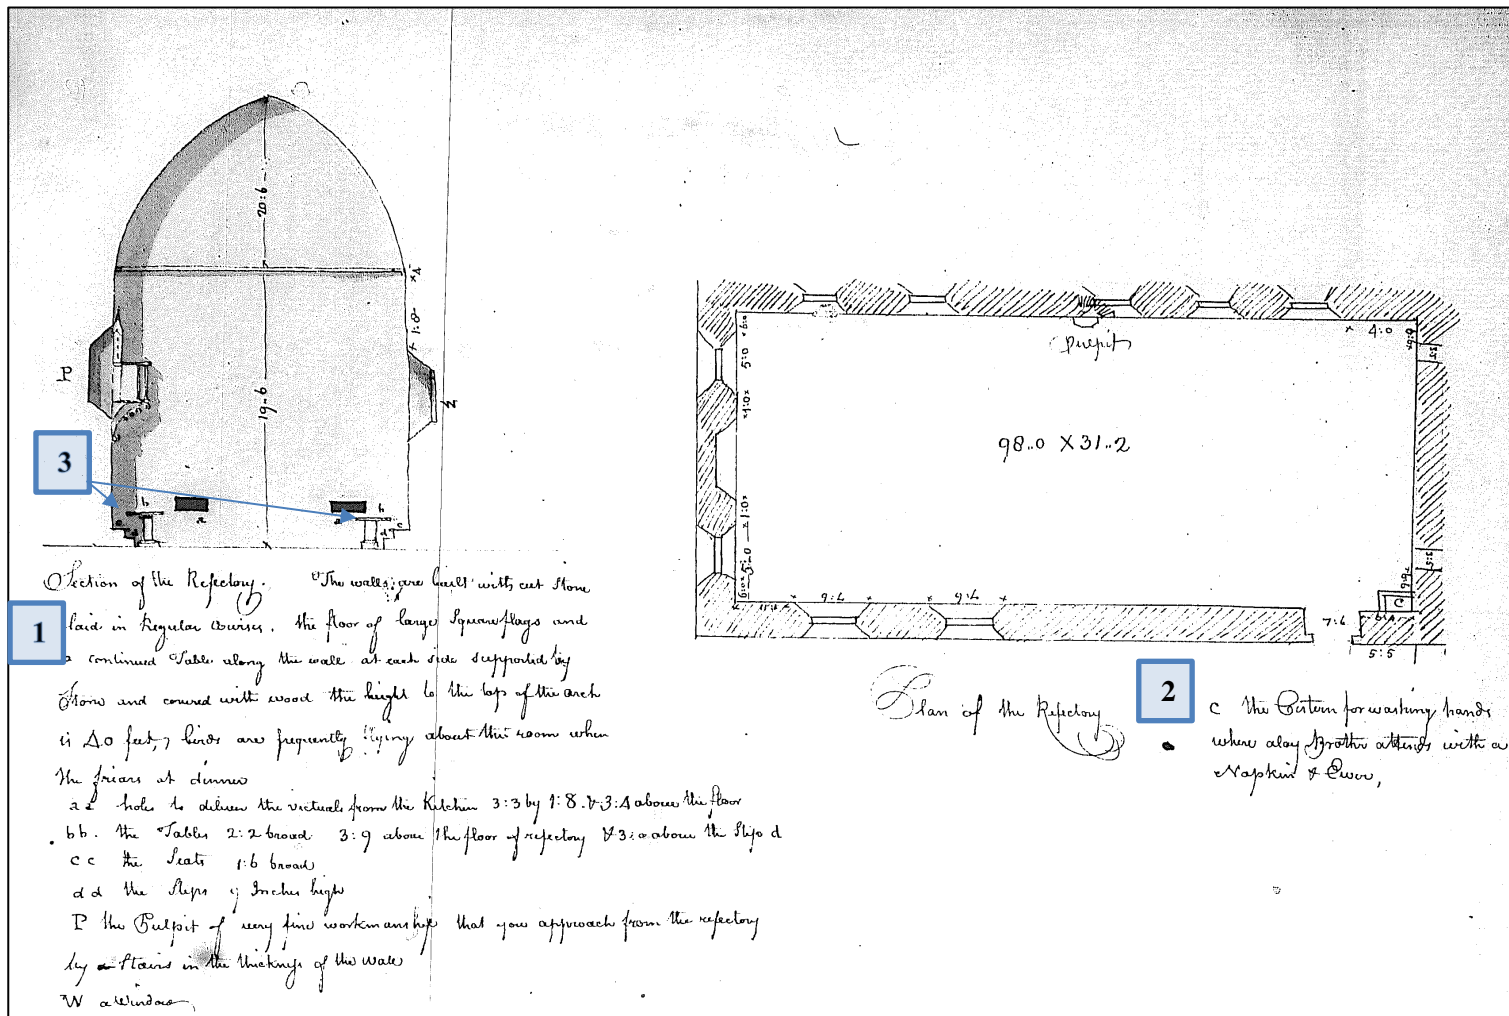 P
20:6
1:8
4
19=6
3
b
a
a
b
c
d
Section of the Refectory. The walls are built with cut stone
1
laid in Regular Courses. the floor of large Square flags and
a continued Table along the wale at each side supported by
Stone and covered with wood the height to the top of the arch
is 40 feet, birds are frequently flying about this room when
the friars at dinner
a a holes to deliver the victuals from the Kitchen 3:3 by 1:8 & 3:4 above the floor
bb. the Tables 2:2 broad 3:9 above the floor of refectory & 3:0 above the Step d
cc the Seats 1:6 broad
dd the Steps 9 Inches high
P the Pulpit of very fine workmanship that you approach from the refectory
by a Stairs in the thickness of the wale
W a Window
Pulpit
4:0
5:0
98..0 X 31..2
5:0
C
7:6
5:5
Plan of the Refectory
2
C the Cistern for washing hands
where a lay Brothr attends with a
Napkin & Ewer,